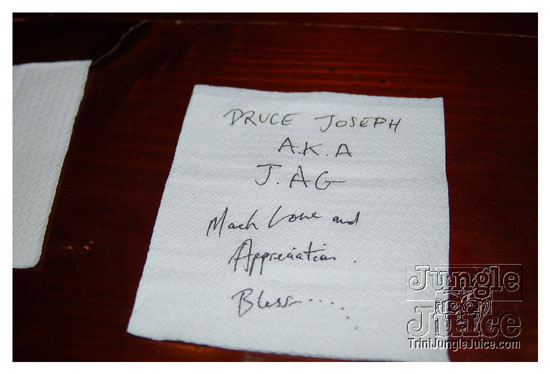 DRUCE JOSEPH
A.K.A
J.AG
Much Love and
Appreciation.
Bless.....
Jungle
Juice
TriniJungleJuice.com